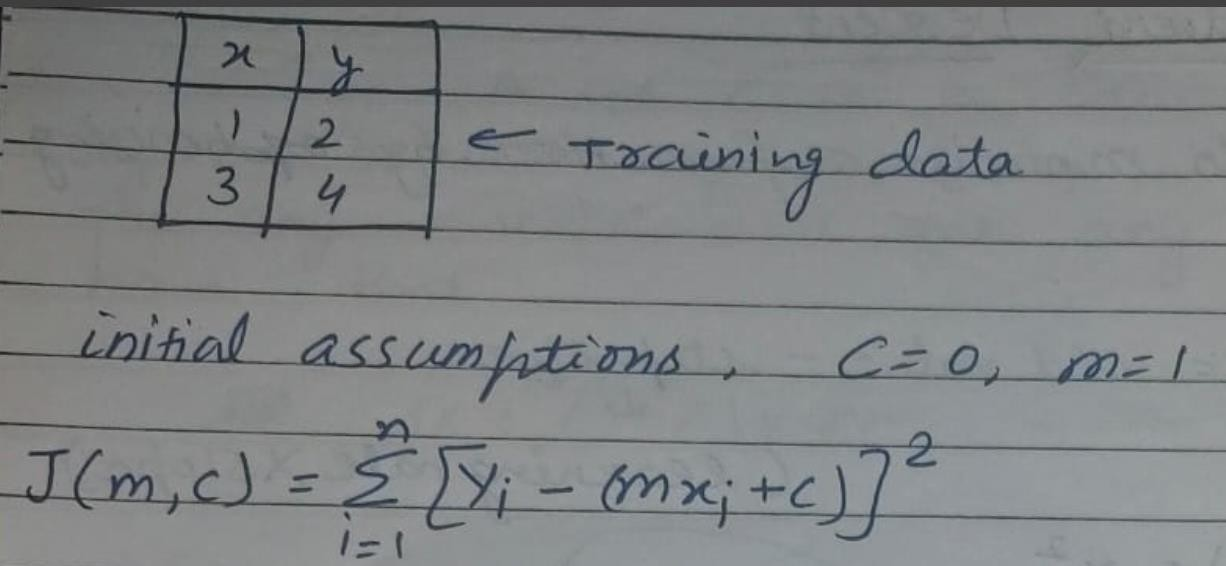 x y
1 2 ← Training data
3 4
initial assumptions, C=0, m=1
J(m,c) = Σ_{i=1}^{n} [y_i - (mx_i+c)]^2